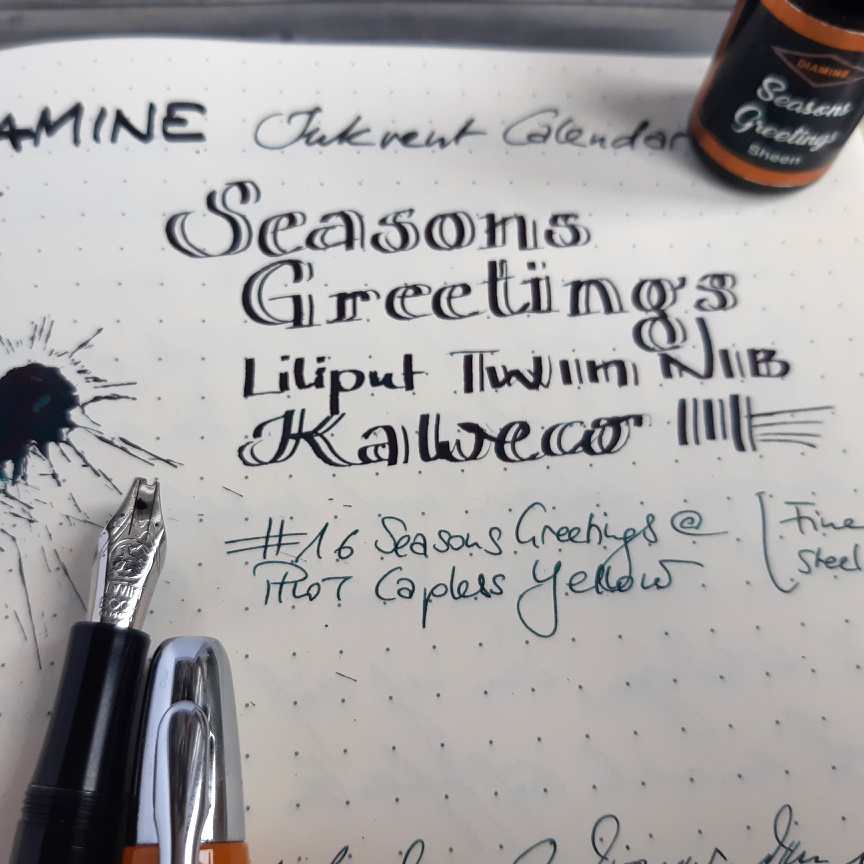 AMINE Inkvent Calendar
DIAMINE
Seasons
Greetings
Sheen
Seasons
Greetings
Liliput Twiin NiB
Kaweco
#16 Seasons Greetings @ Fine
Pilot Capless Yellow Steel